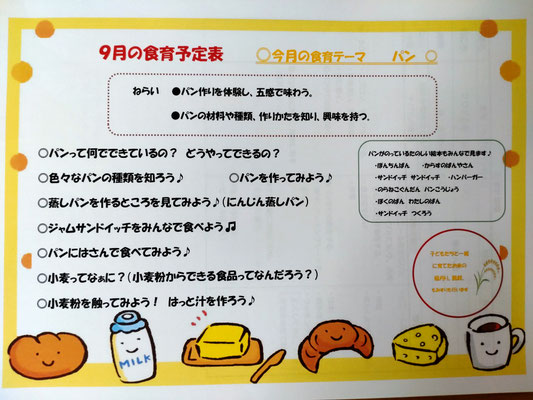 9月の食育予定表
○今月の食育テーマ　　パン　○
ねらい　●パン作りを体験し、五感で味わう。
●パンの材料や種類、作りかたを知り、興味を持つ。
○パンって何でできているの？ どうやってできるの？
○色々なパンの種類を知ろう♪　　○パンを作ってみよう♪
○蒸しパンを作るところを見てみよう♪(にんじん蒸しパン)
○ジャムサンドイッチをみんなで食べよう♫
○パンにはさんで食べてみよう♪
○小麦ってなぁに？(小麦粉からできる食品ってなんだろう？)
○小麦粉を触ってみよう！ はっと汁を作ろう♪
パンがのっているたのしい絵本もみんなで見ます♪
・ぱんちんぱん　・からすのぱんやさん
・サンドイッチ サンドイッチ　・ハンバーガー
・のらねこぐんだん パンこうじょう
・ぼくのぱん わたしのぱん
・サンドイッチ つくろう
子どもたちと一緒
に育てたお米の
稲刈り、脱穀、
MILK